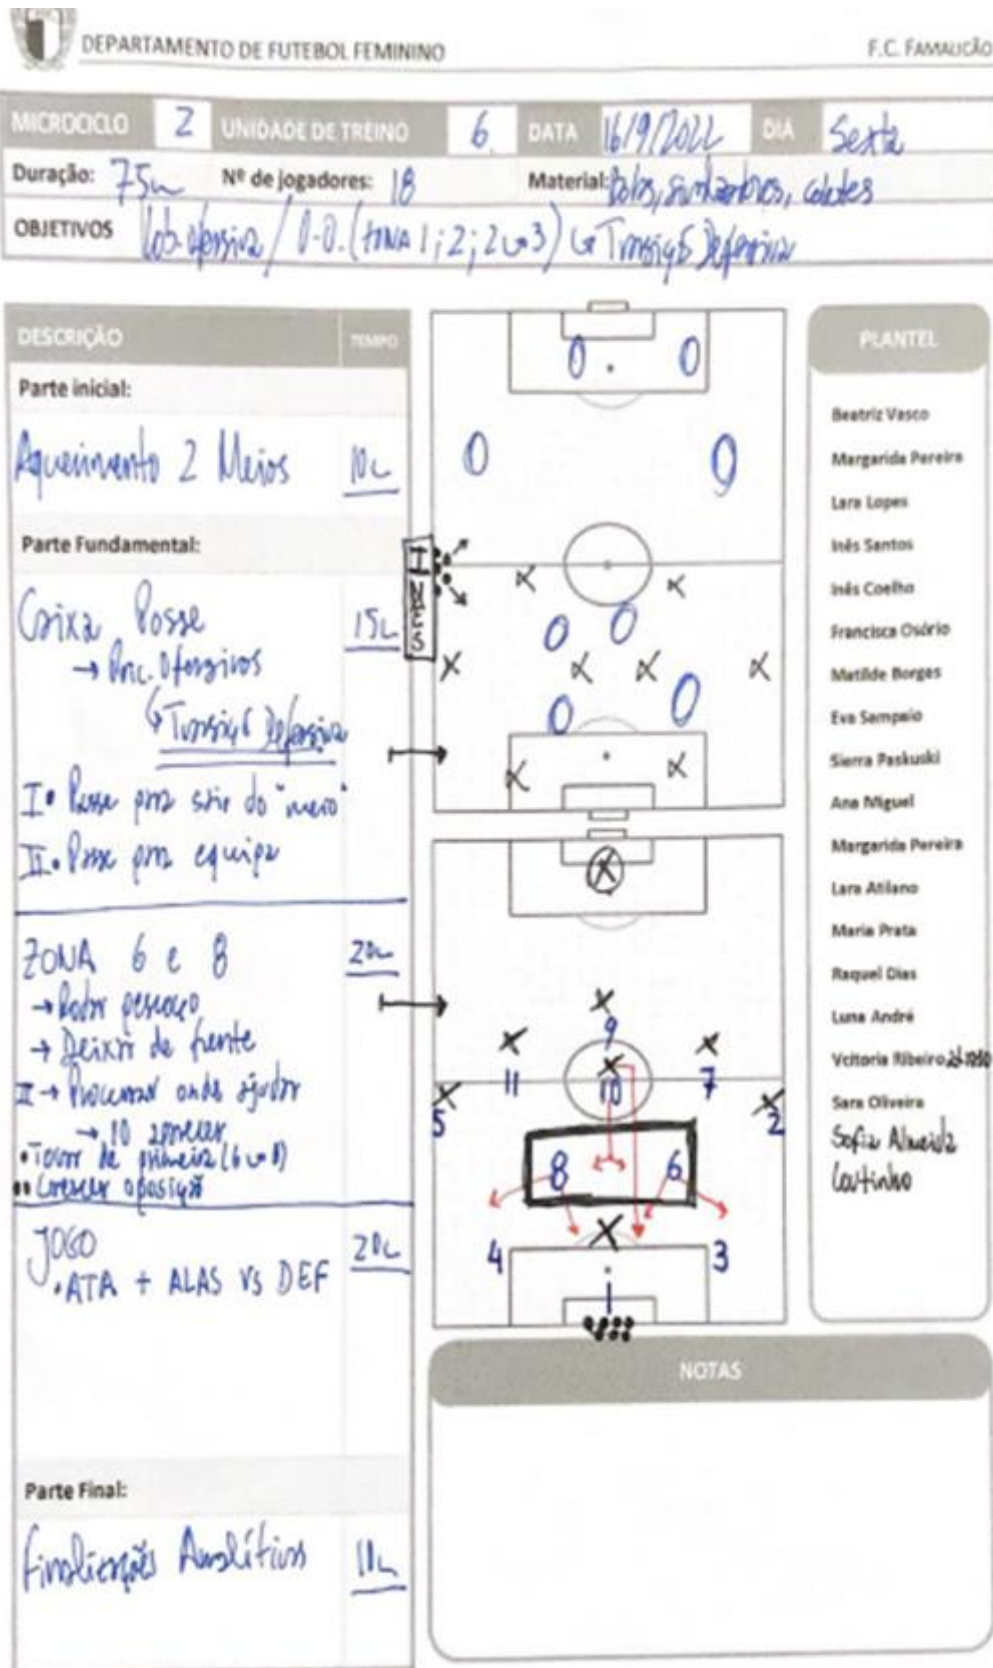 DEPARTAMENTO DE FUTEBOL FEMININO
F.C. FAMALICÃO
MICROCICLO 2 UNIDADE DE TREINO 6 DATA 16/9/2022 DIA Sexta
Duração: 75m Nº de jogadores: 18 Material: Bolas, sinalizadores, coletes
OBJETIVOS ofensiva / O.O. (ZONA 1; 2; 2 3) Transição Defensiva
DESCRIÇÃO TEMPO
Parte inicial:
Aquecimento 2 Meios
Parte Fundamental:
Caixa Posse
→ Princ. Ofensivos
↳ Transição Defensiva
I • Posse para sair do "meio"
II • Posse por equipa
ZONA 6 e 8
→ Rodar pescoço
→ Deixar de frente
II → Procurar onde ajudar
→ 10 aparecer
• Tocar de primeira (6 8)
•• Crescer oposição
JOGO
• ATA + ALAS VS DEF
Parte Final:
Finalizações Analíticas
0 0
0 0
X X
0 0
X X X X
0 0
X X
X
X
9
X X X
11 10 7
X X
5 2
8 6
X
4 3
1
PLANTEL
Beatriz Vasco
Margarida Pereira
Lara Lopes
Inês Santos
Inês Coelho
Francisca Osório
Matilde Borges
Eva Sampaio
Sierra Paskuski
Ana Miguel
Margarida Pereira
Lara Atilano
Maria Prata
Raquel Dias
Luna André
Vcitoria Ribeiro
Sara Oliveira
Sofia Almeida
Coutinho
NOTAS